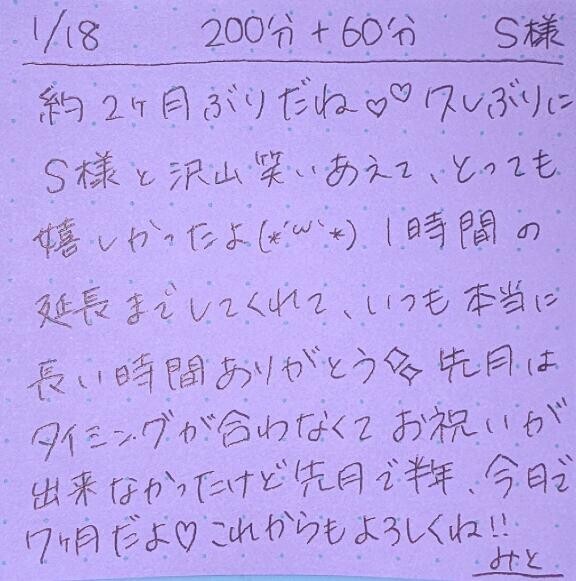 1/18 200分+60分 S様
約2ヶ月ぶりだね♡♡ 久しぶりに
S様と沢山笑いあえて、とっても
嬉しかったよ(*´ω`*) 1時間の
延長までしてくれて、いつも本当に
長い時間ありがとう✨ 先月は
タイミングが合わなくてお祝いが
出来なかったけど先月で半年、今日で
7ヶ月だよ♡これからもよろしくね!!
みと